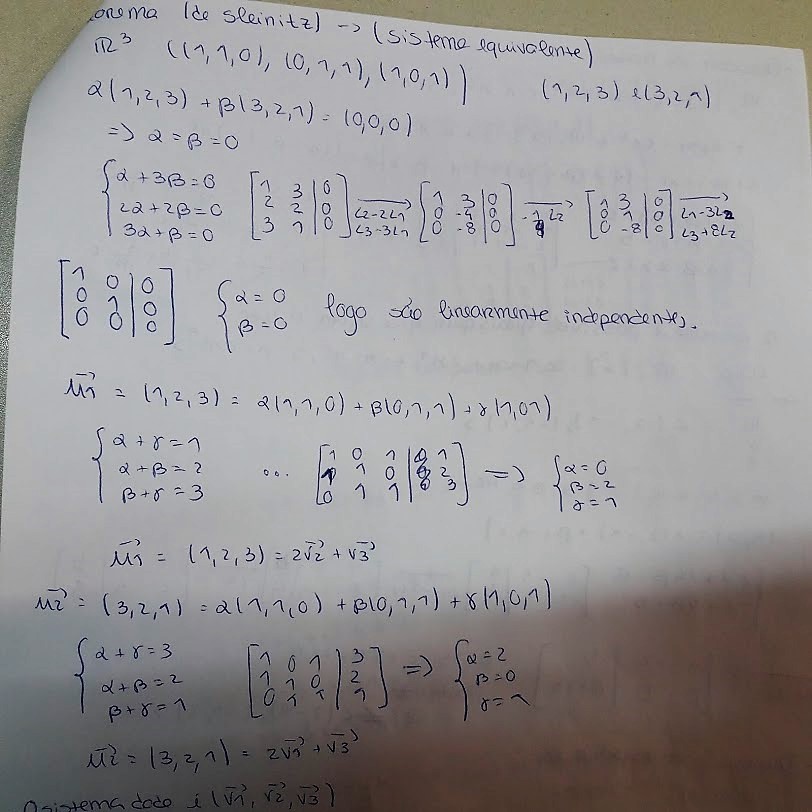 orema (de Steinitz) -> (sistema equivalente)
ℝ³ ((1,1,0), (0,1,1), (1,0,1)) (1,2,3) e (3,2,1)
α(1,2,3) + β(3,2,1) = (0,0,0)
=> α = β = 0
{ α + 3β = 0
2α + 2β = 0
3α + β = 0
[ 1 3 | 0
2 2 | 0
3 1 | 0 ] L2-2L1 L3-3L1 →
[ 1 3 | 0
0 -4 | 0
0 -8 | 0 ] -1/4 L2 →
[ 1 3 | 0
0 1 | 0
0 -8 | 0 ] L1-3L2 L3+8L2 →
[ 1 0 | 0
0 1 | 0
0 0 | 0 ]
{ α = 0
β = 0 logo são linearmente independentes.
u1 = (1,2,3) = α(1,1,0) + β(0,1,1) + γ(1,01)
{ α + γ = 1
α + β = 2
β + γ = 3
... [ 1 0 1 | 1
1 1 0 | 2
0 1 1 | 3 ] => { α = 0
β = 2
γ = 1
u1 = (1,2,3) = 2v2 + v3
u2 = (3,2,1) = α(1,1,0) + β(0,1,1) + γ(1,0,1)
{ α + γ = 3
α + β = 2
β + γ = 1
[ 1 0 1 | 3
1 1 0 | 2
0 1 1 | 1 ] => { α = 2
β = 0
γ = 1
u2 = (3,2,1) = 2v1 + v3
O sistema dado é (v1, v2, v3)